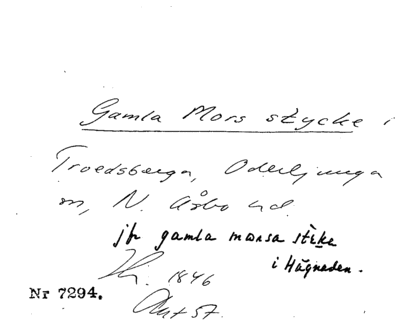 Gamla Mors stycke i
Troedsberga, Oderljunga
sn, N. Åsbo hd.
jfr gamla morsa stike
i Hägnaden.
1846
Nr 7294.